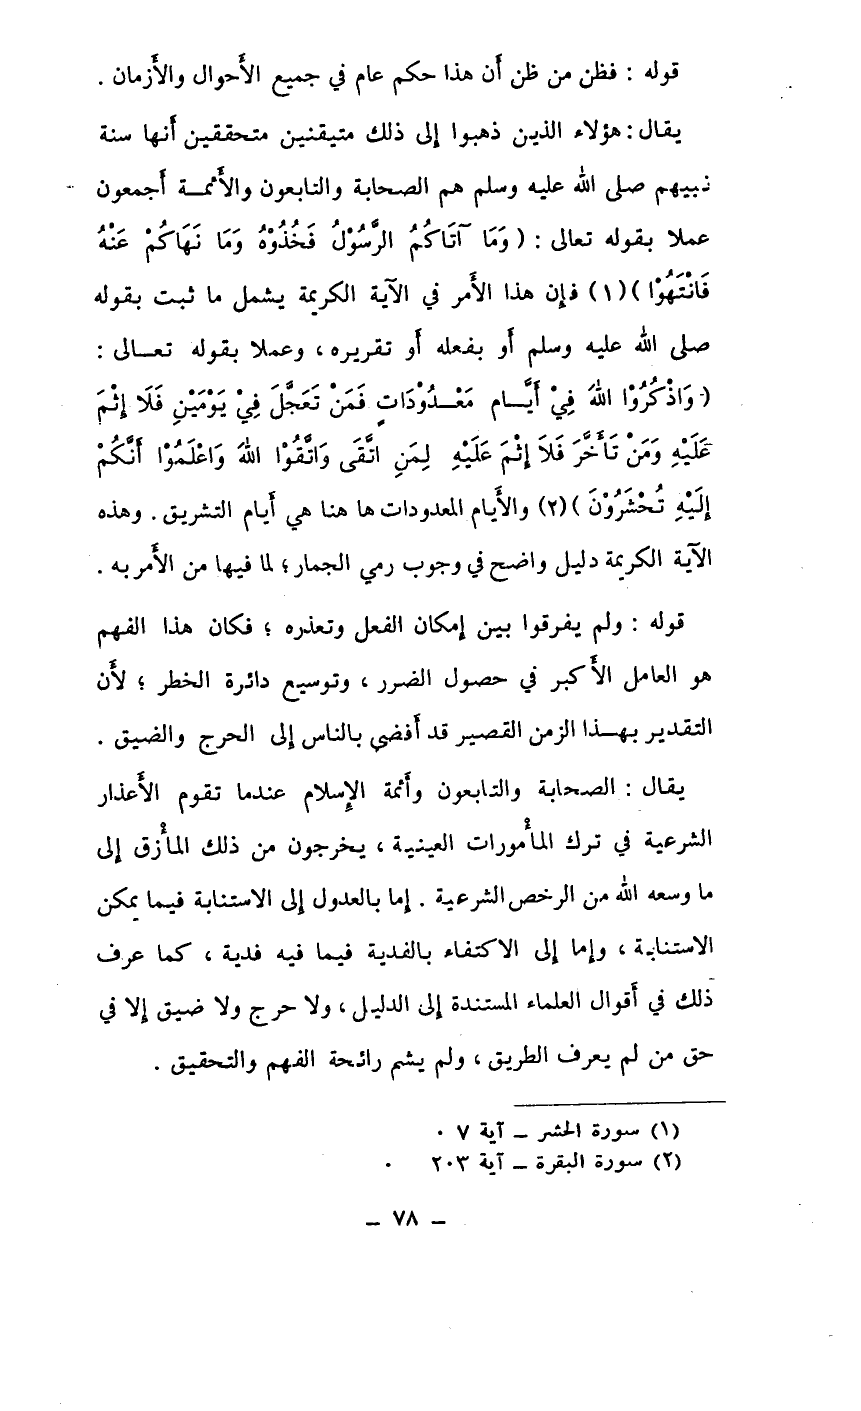 قوله : فظن من ظن أن هذا حكم عام في جميع الأحوال والأزمان .
يقال : هؤلاء الذين ذهبوا إلى ذلك متيقنين متحققين أنها سنة
نبيهم صلى الله عليه وسلم هم الصحابة والتابعون والأئمـــة أجمعون
عملا بقوله تعالى : ( وَمَا آتَاكُمُ الرَّسُوْلُ فَخُذُوْهُ وَمَا نَهَاكُمْ عَنْهُ
فَانْتَهُوْا )(١) فإن هذا الأمر في الآية الكريمة يشمل ما ثبت بقوله
صلى الله عليه وسلم أو بفعله أو تقريره ، وعملا بقوله تعــالى :
( وَاذْكُرُوْا اللهَ فِيْ أَيَّـــامٍ مَعْــدُوْدَاتٍ فَمَنْ تَعَجَّلَ فِيْ يَوْمَيْنِ فَلَا إِثْمَ
عَلَيْهِ وَمَنْ تَأَخَّرَ فَلاَ إِثْمَ عَلَيْهِ لِمَنِ اتَّقَى وَاتَّقُوْا اللهَ وَاعْلَمُوْا أَنَّكُمْ
إِلَيْهِ تُحْشَرُوْنَ )(٢) والأيام المعدودات ها هنا هي أيام التشريق . وهذه
الآية الكريمة دليل واضح في وجوب رمي الجمار ؛ لما فيها من الأمر به .
قوله : ولم يفرقوا بين إمكان الفعل وتعذره ؛ فكان هذا الفهم
هو العامل الأكبر في حصول الضرر ، وتوسيع دائرة الخطر ؛ لأن
التقدير بهــذا الزمن القصير قد أفضي بالناس إلى الحرج والضيق .
يقال : الصحابة والتابعون وأئمة الإسلام عندما تقوم الأعذار
الشرعية في ترك المأمورات العينية ، يخرجون من ذلك المأزق إلى
ما وسعه الله من الرخص الشرعية . إما بالعدول إلى الاستنابة فيما يمكن
الاستنابة ، وإما إلى الاكتفاء بالفدية فيما فيه فدية ، كما عرف
ذلك في أقوال العلماء المستندة إلى الدليل ، ولا حرج ولا ضيق إلا في
حق من لم يعرف الطريق ، ولم يشم رائحة الفهم والتحقيق .
(١) سورة الحشر – آية ٧ .
(٢) سورة البقرة – آية ٢٠٣ .
– ٧٨ –